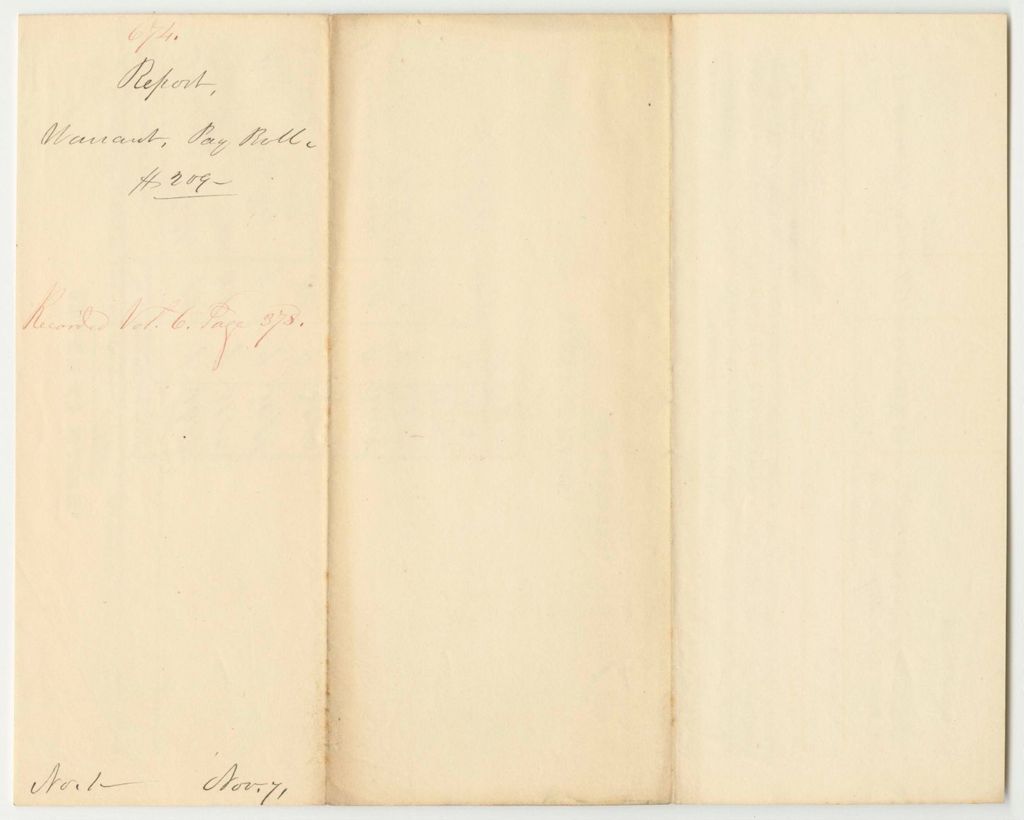 674.
Report,
Warrant, Pay Roll.
$209-
Recorded Vol. 6. Page 378.
No. 1- Nov. 7,